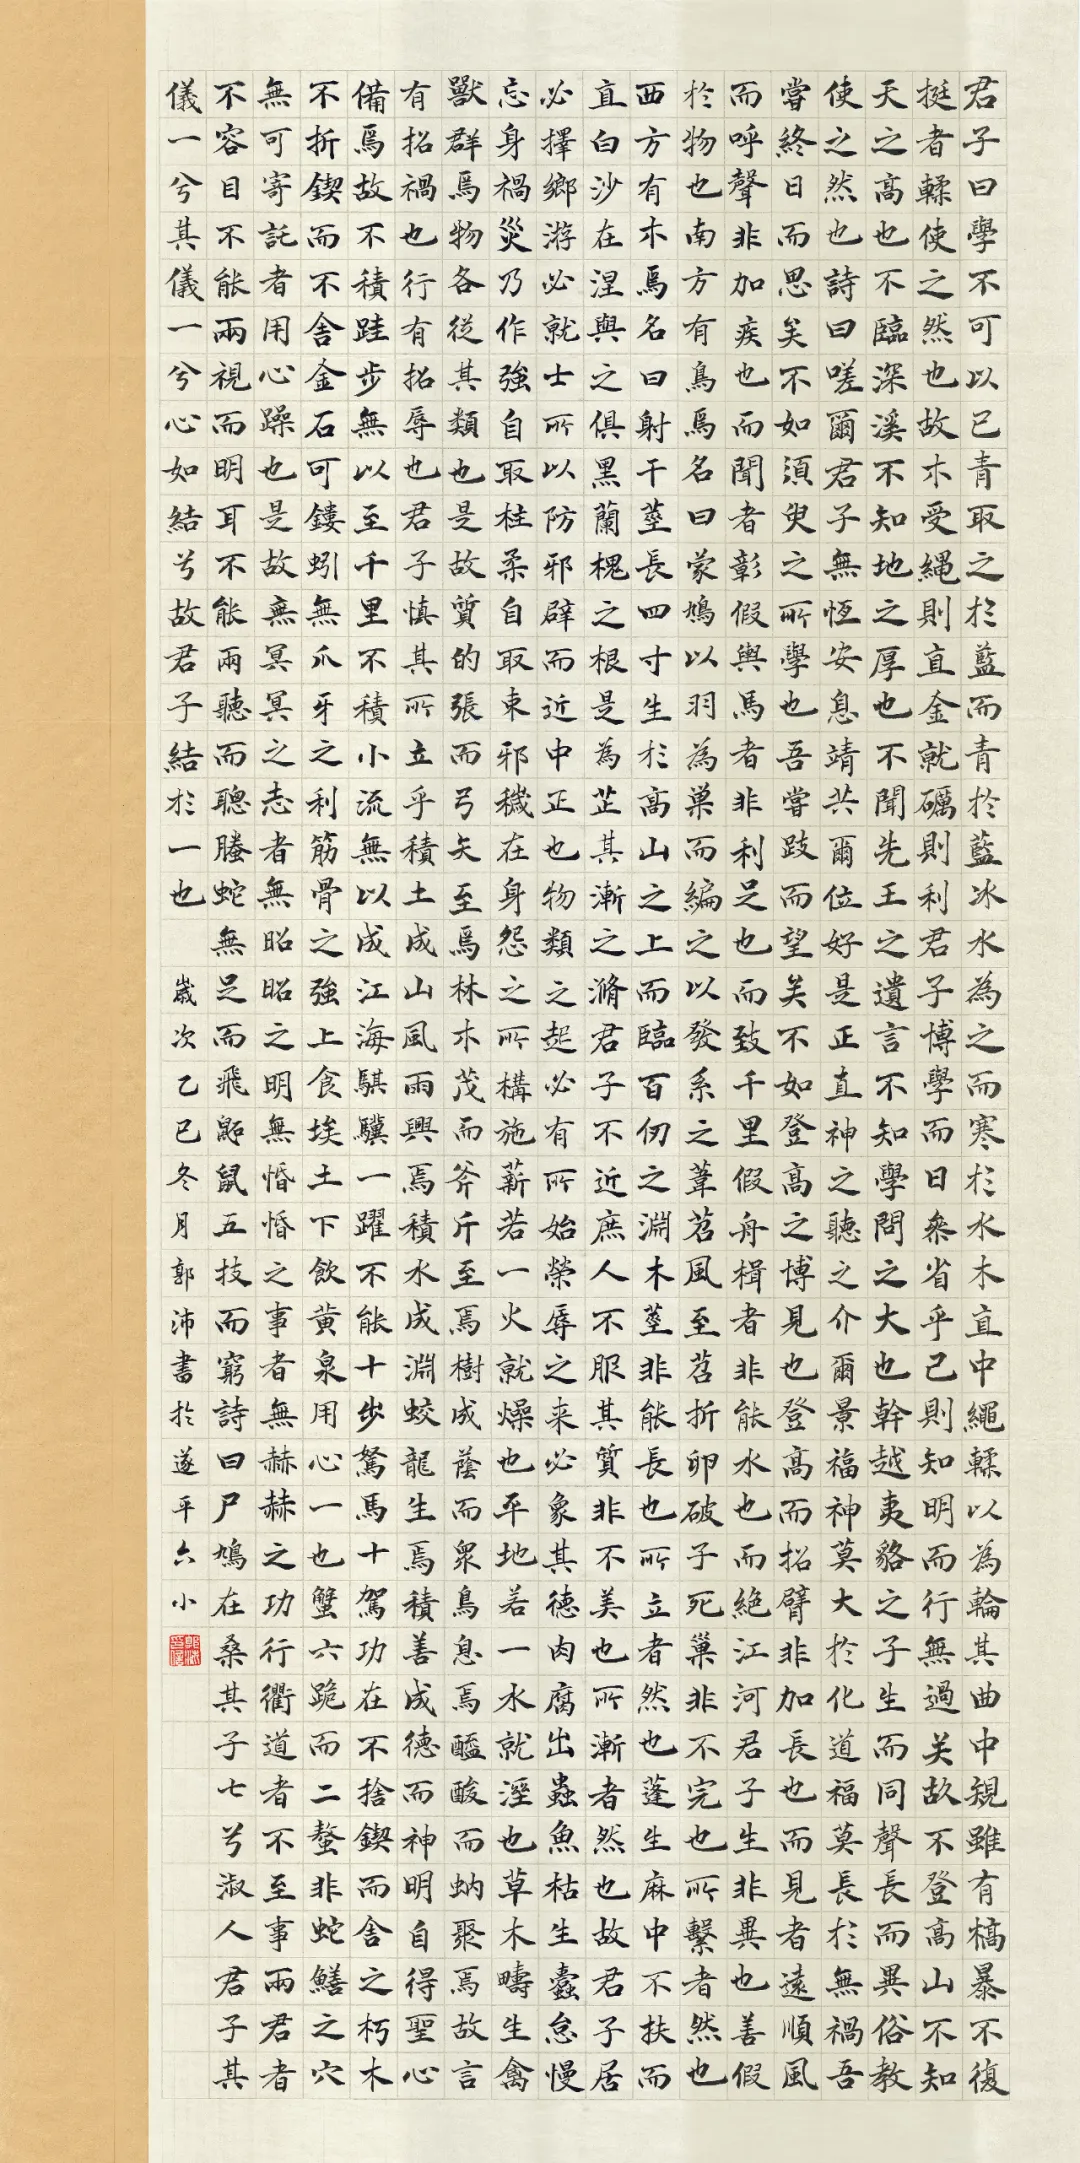 君子曰學不可以已青取之於藍而青於藍冰水為之而寒於水木直中繩輮以為輪其曲中規雖有槁暴不復
挺者輮使之然也故木受繩則直金就礪則利君子博學而日參省乎己則知明而行無過矣故不登高山不知
天之高也不臨深溪不知地之厚也不聞先王之遺言不知學問之大也幹越夷貉之子生而同聲長而異俗教
使之然也詩曰嗟爾君子無恆安息靖共爾位好是正直神之聽之介爾景福神莫大於化道福莫長於無禍吾
嘗終日而思矣不如須臾之所學也吾嘗跂而望矣不如登高之博見也登高而招臂非加長也而見者遠順風
而呼聲非加疾也而聞者彰假輿馬者非利足也而致千里假舟楫者非能水也而絕江河君子生非異也善假
於物也南方有鳥焉名曰蒙鳩以羽為巢而編之以發系之葦苕風至苕折卵破子死巢非不完也所繫者然也
西方有木焉名曰射干莖長四寸生於高山之上而臨百仞之淵木莖非能長也所立者然也蓬生麻中不扶而
直白沙在涅與之俱黑蘭槐之根是為芷其漸之滫君子不近庶人不服其質非不美也所漸者然也故君子居
必擇鄉游必就士所以防邪辟而近中正也物類之起必有所始榮辱之來必象其德肉腐出蟲魚枯生蠹怠慢
忘身禍災乃作強自取柱柔自取束邪穢在身怨之所構施薪若一火就燥也平地若一水就溼也草木疇生禽
獸群焉物各從其類也是故質的張而弓矢至焉林木茂而斧斤至焉樹成蔭而眾鳥息焉醯酸而蚋聚焉故言
有招禍也行有招辱也君子慎其所立乎積土成山風雨興焉積水成淵蛟龍生焉積善成德而神明自得聖心
備焉故不積跬步無以至千里不積小流無以成江海騏驥一躍不能十步駑馬十駕功在不捨鍥而舍之朽木
不折鍥而不舍金石可鏤蚓無爪牙之利筋骨之強上食埃土下飲黃泉用心一也蟹六跪而二螯非蛇鱔之穴
無可寄託者用心躁也是故無冥冥之志者無昭昭之明無惛惛之事者無赫赫之功行衢道者不至事兩君者
不容目不能兩視而明耳不能兩聽而聰螣蛇無足而飛鼫鼠五技而窮詩曰尸鳩在桑其子七兮淑人君子其
儀一兮其儀一兮心如結兮故君子結於一也
歲次乙巳冬月郭沛書於遂平六小